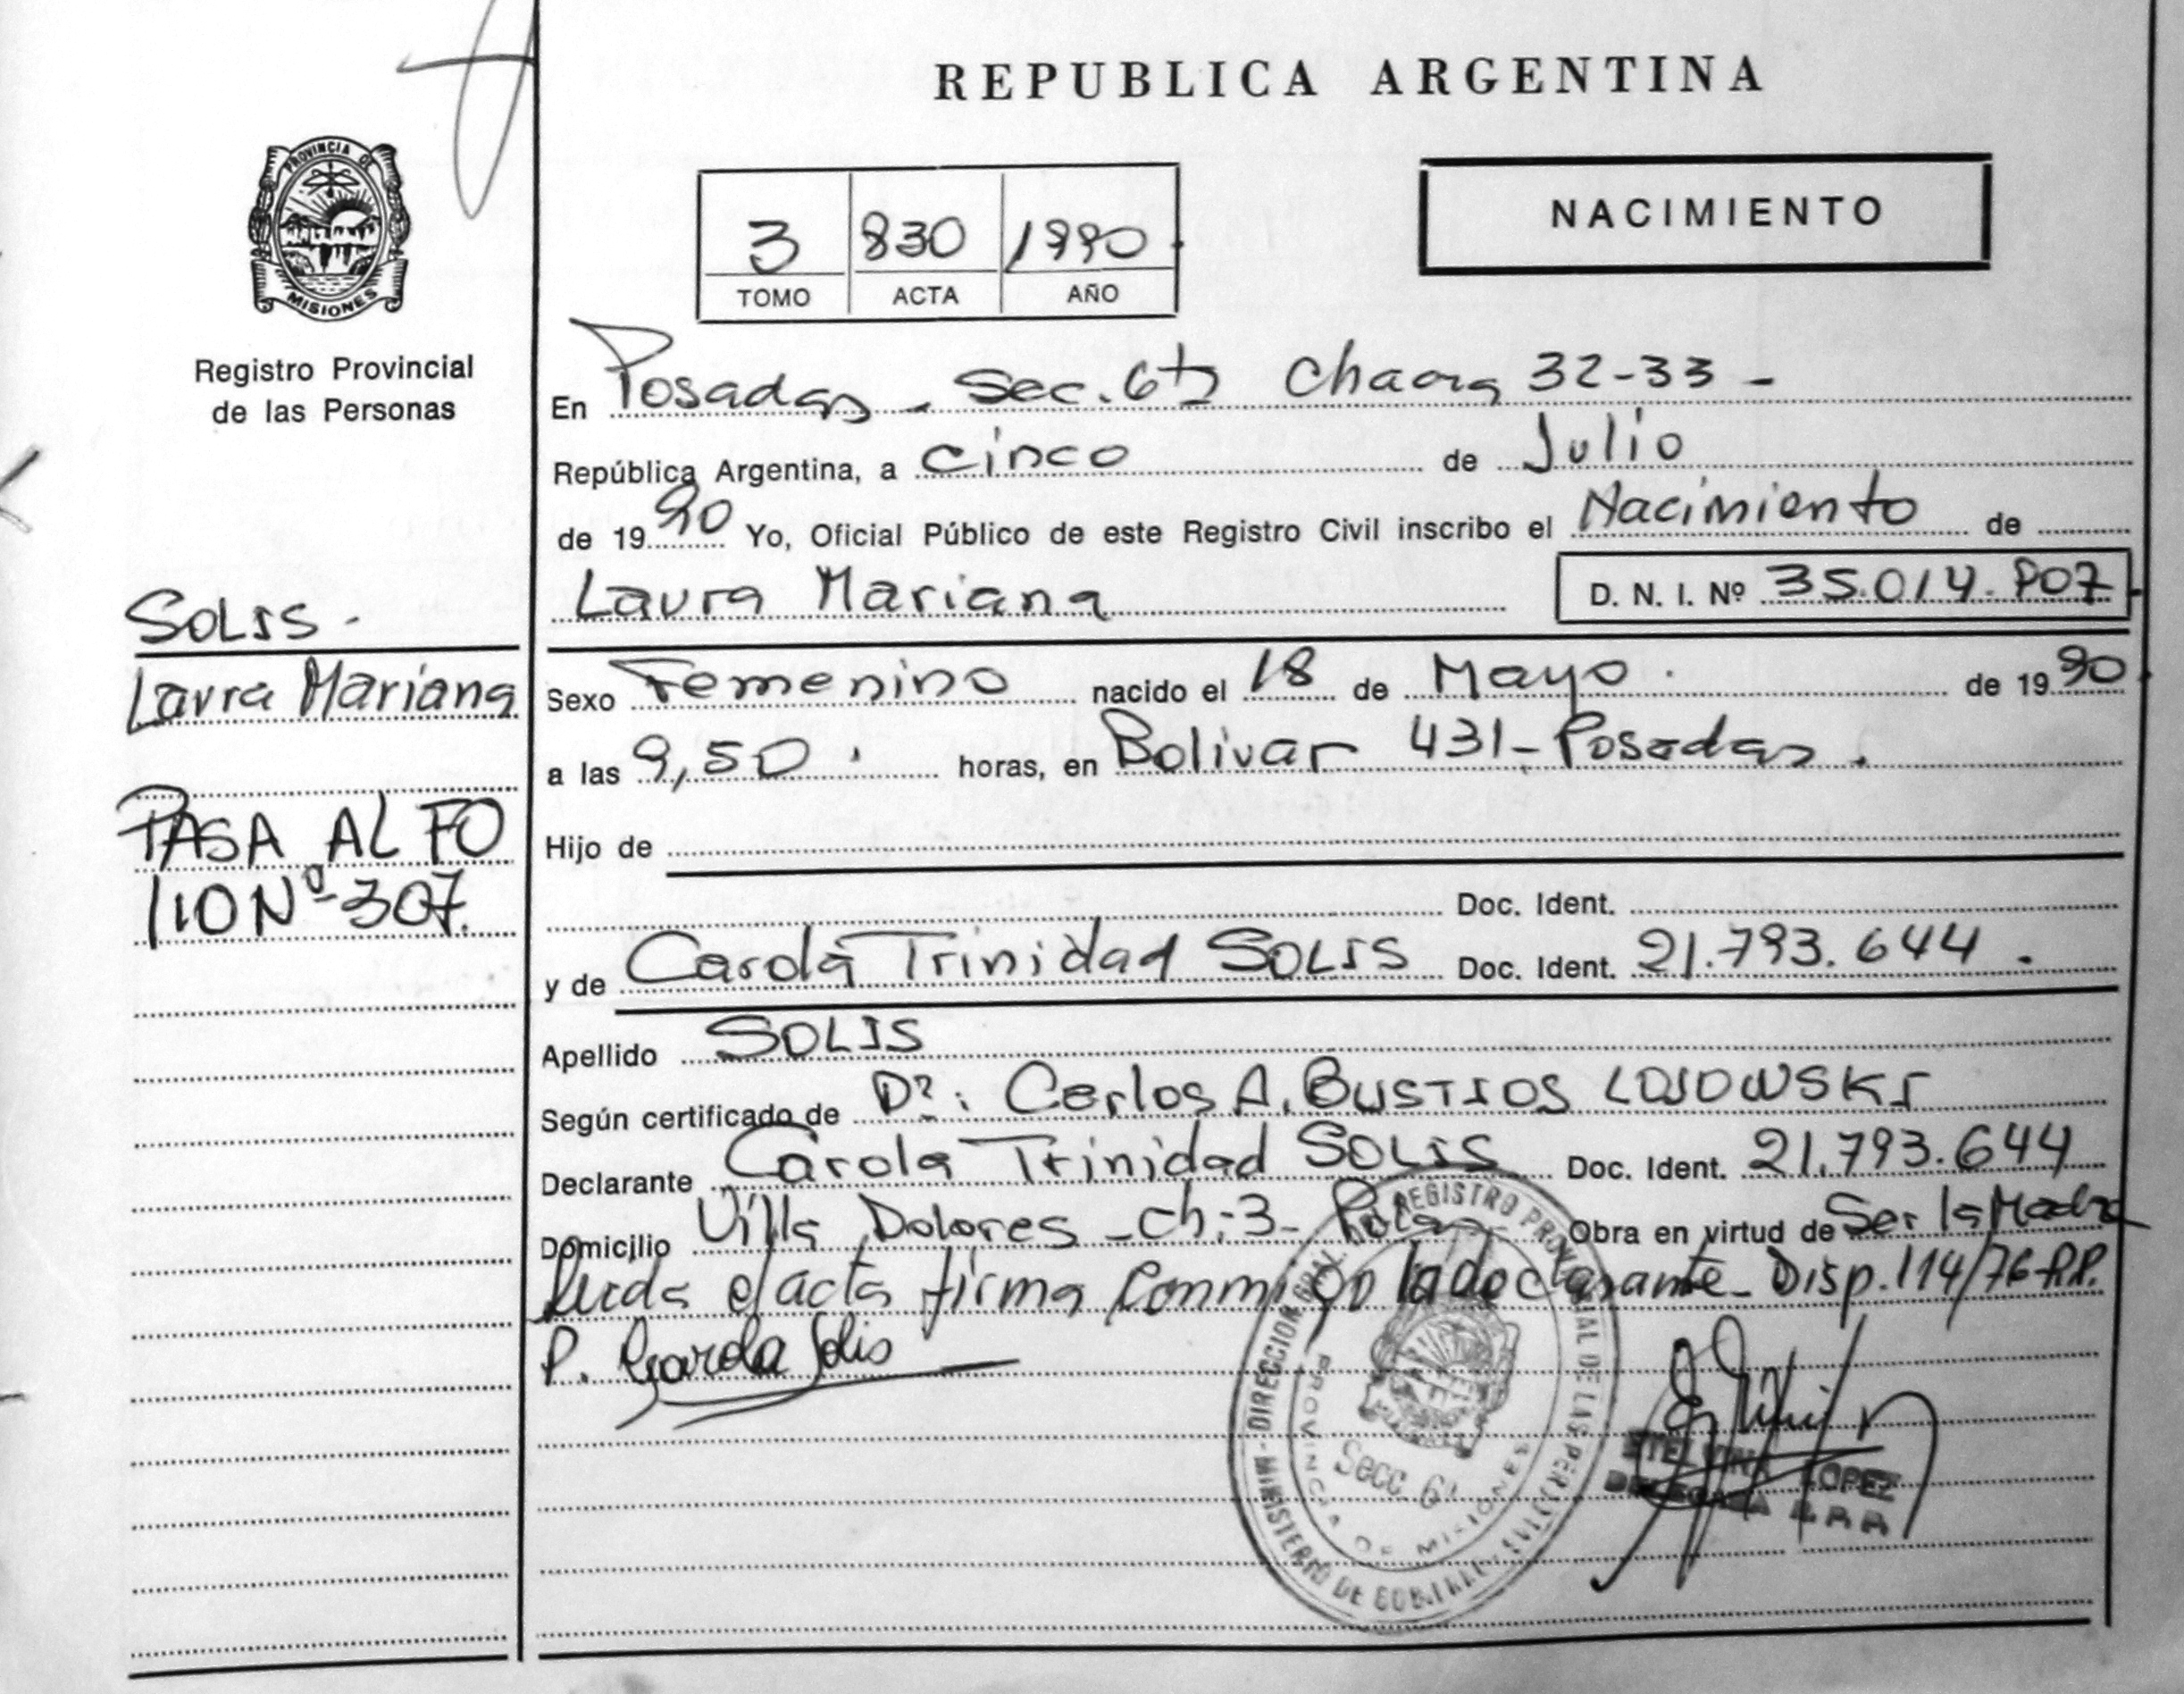 REPUBLICA ARGENTINA
PROVINCIA DE
MISIONES
Registro Provincial
de las Personas
3 830 1990
TOMO ACTA AÑO
NACIMIENTO
En Posadas - Sec. 6ta Chacra 32-33 -
República Argentina, a cinco de Julio
de 1990 Yo, Oficial Público de este Registro Civil inscribo el Nacimiento de
Laura Mariana D. N. I. Nº 35.014.907
SOLIS.
Laura Mariana
Sexo Femenino nacido el 18 de Mayo. de 1990
a las 9,50. horas, en Bolivar 431-Posadas.
PASA AL FO
110 Nº 307.
Hijo de
Doc. Ident.
y de Carola Trinidad SOLIS Doc. Ident. 21.793.644.
Apellido SOLIS
Según certificado de Dr: Carlos A. BUSTIOS LOSOWSKI
Declarante Carola Trinidad SOLIS Doc. Ident. 21.793.644
Domicilio Villa Dolores - ch:3- Obra en virtud de Ser la Madre
Leida el acta firma conmigo la declarante- Disp. 114/76-R.P.
P. Carola Solis
MINISTERIO DE GOBIERNO - DIRECCION GRAL. DEL REGISTRO PROVINCIAL DE LAS PERSONAS
PROVINCIA DE MISIONES
Secc. 6ª
LOPEZ
DELEGADA